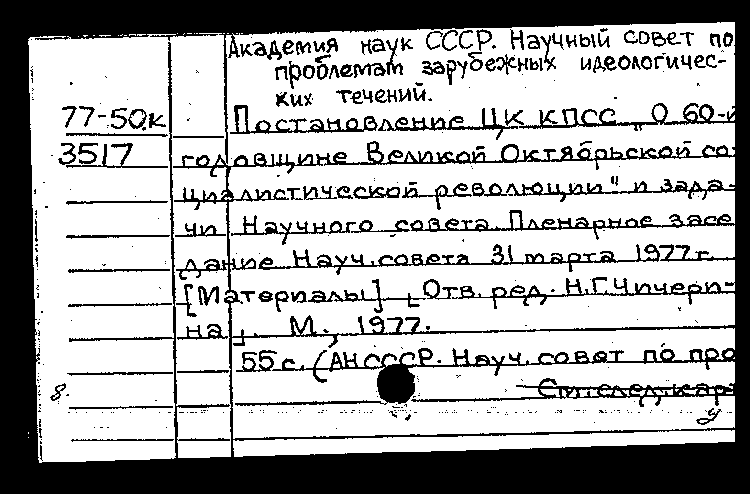 Академия наук СССР. Научный совет по
проблемам зарубежных идеологичес-
ких течений.
77-50к Постановление ЦК КПСС „О 60-й
3517 годовщине Великой Октябрьской со-
циалистической революции" и зада-
чи Научного совета. Пленарное засе
дание Науч. совета 31 марта 1977 г.
[Материалы] [Отв. ред. Н.Г. Чичери-
на]. М., 1977.
55 с. (АН СССР. Науч. совет по про
8. См. след. кар